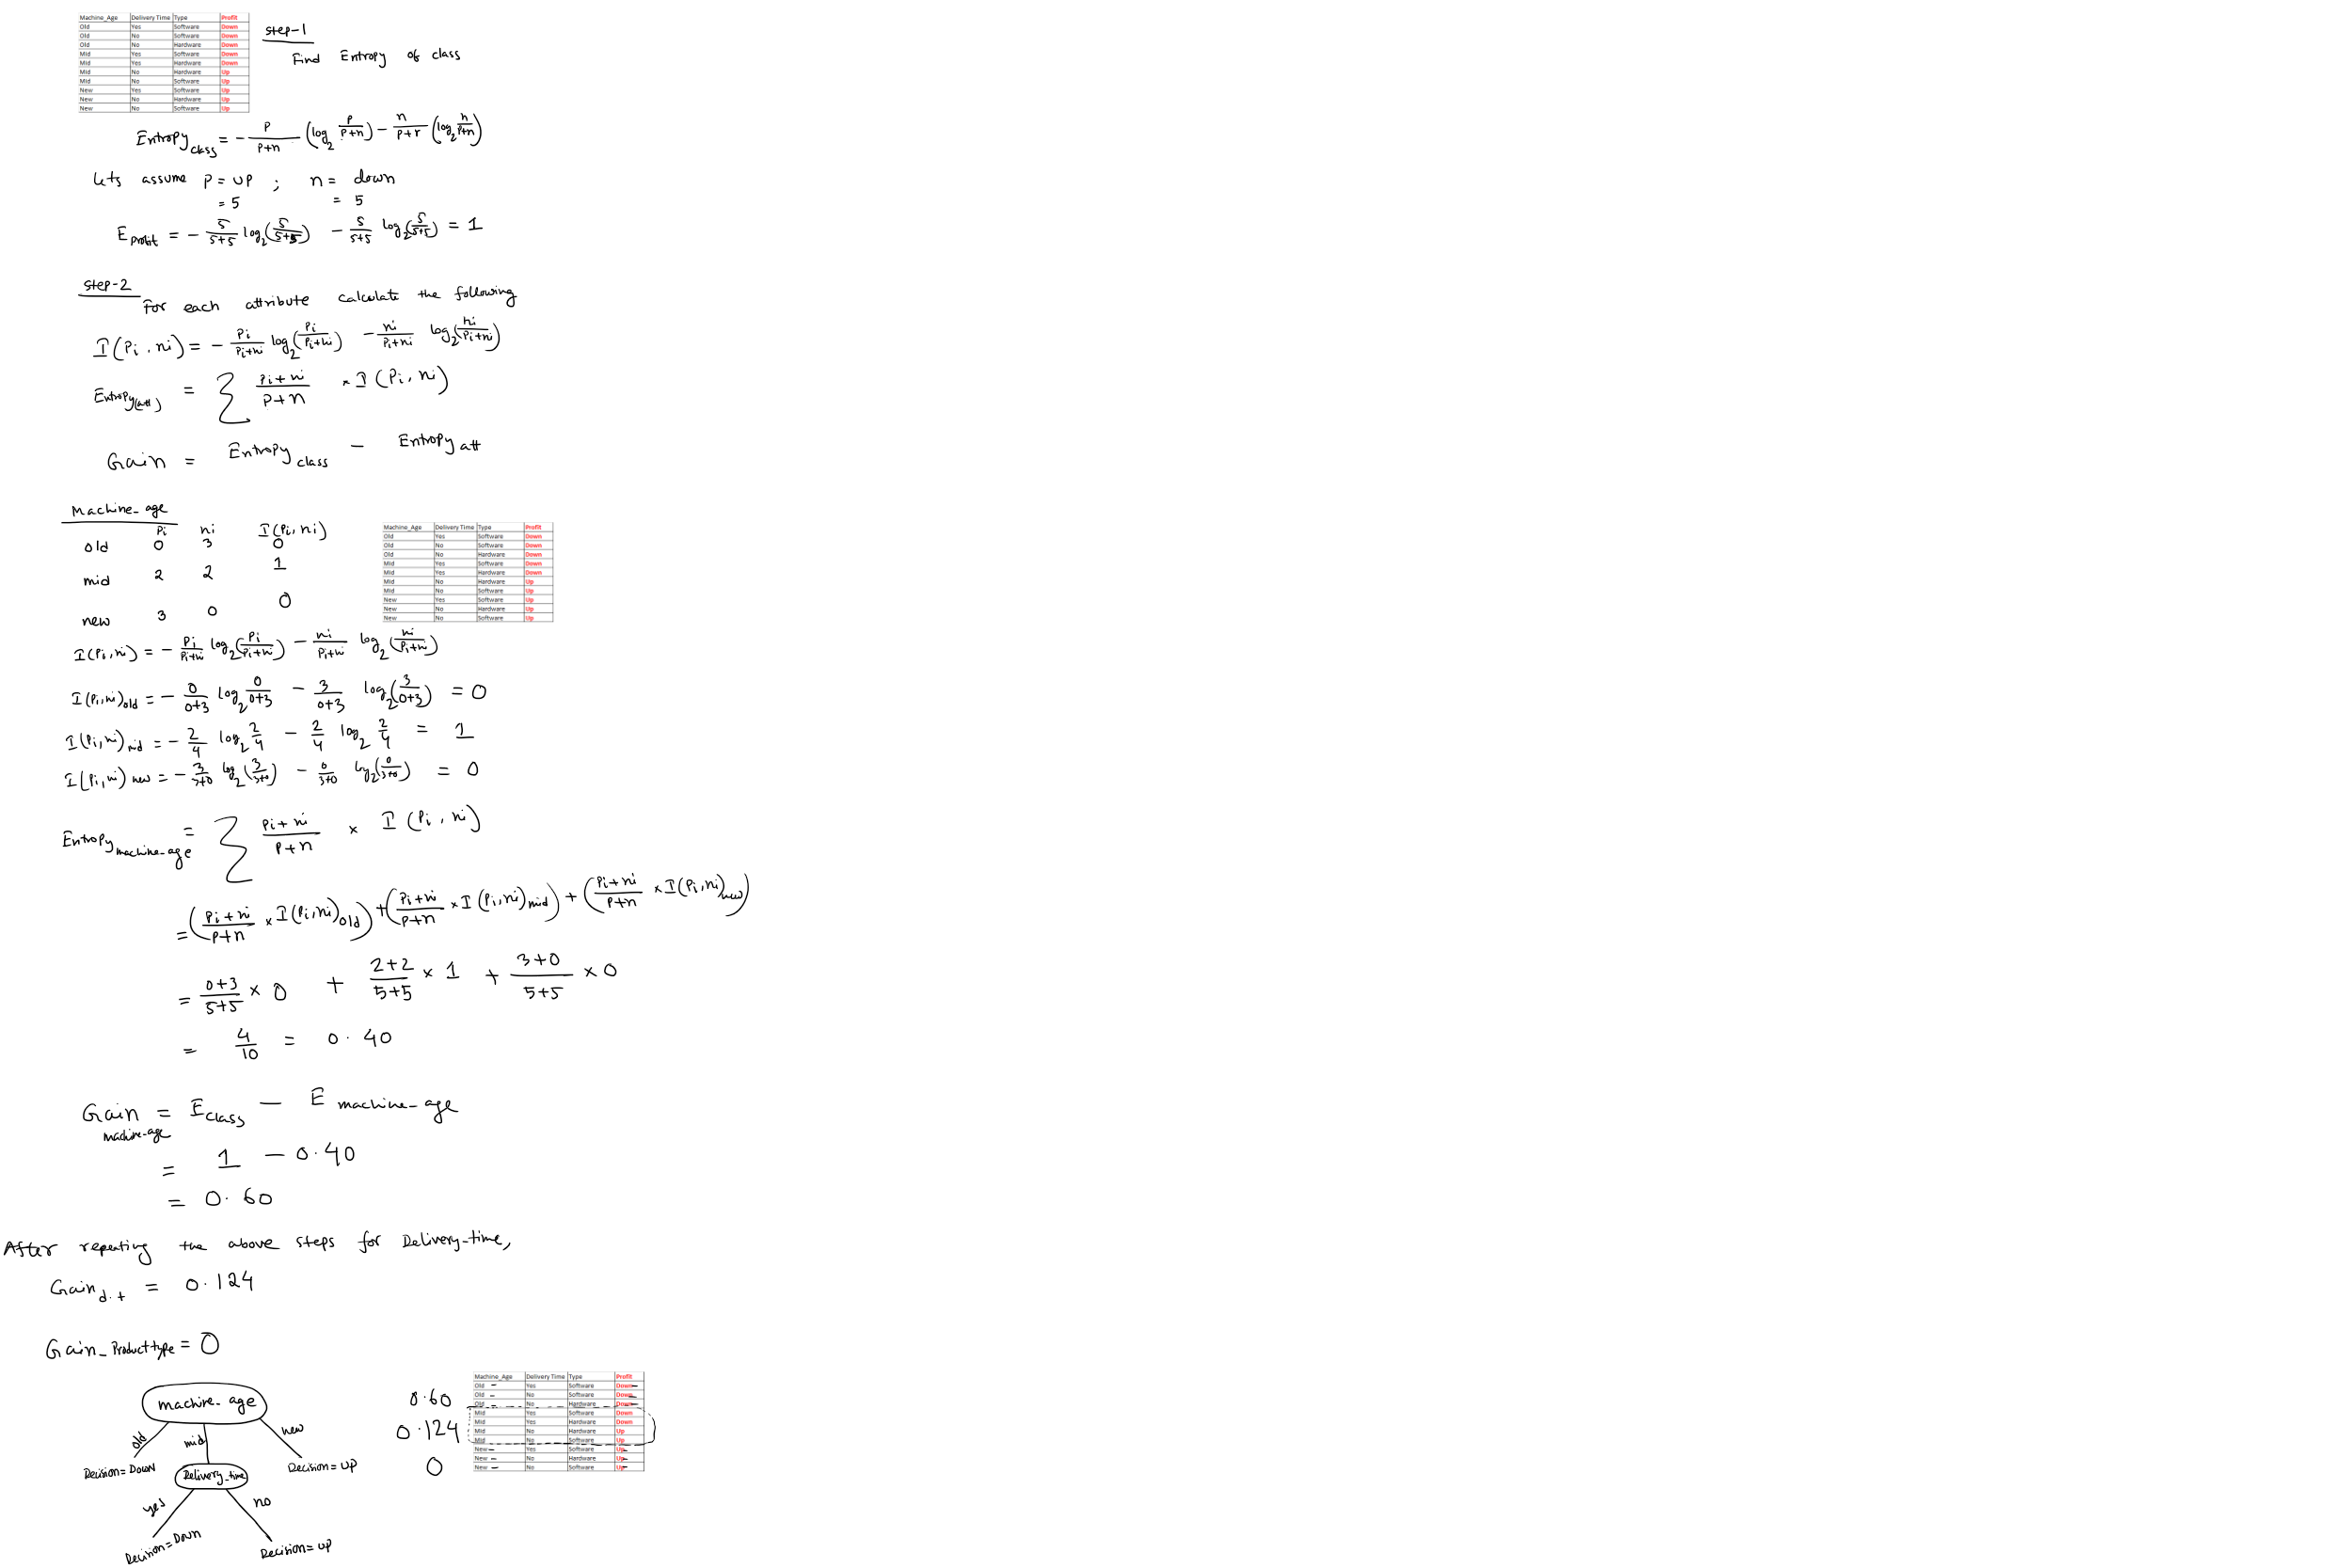 Machine_Age Delivery Time Type Profit
Old Yes Software Down
Old No Software Down
Old No Hardware Down
Mid Yes Software Down
Mid Yes Hardware Down
Mid No Hardware Up
Mid No Software Up
New Yes Software Up
New No Hardware Up
New No Software Up
step-1
Find Entropy of class
Entropy class = - p/p+n (log2 p/p+n) - n/p+r (log2 n/p+n)
Lets assume p = up ; n = down
= 5 = 5
E profit = - 5/5+5 log2(5/5+5) - 5/5+5 log2(5/5+5) = 1
step-2
For each attribute calculate the following
I(Pi, ni) = - Pi/Pi+ni log2(Pi/Pi+ni) - ni/Pi+ni log2(ni/Pi+ni)
Entropy(att) = Σ Pi+ni/P+n × I(Pi, ni)
Gain = Entropy class - Entropy att
Machine_age
Pi ni I(Pi, ni)
old 0 3 0
mid 2 2 1
new 3 0 0
Machine_Age Delivery Time Type Profit
Old Yes Software Down
Old No Software Down
Old No Hardware Down
Mid Yes Software Down
Mid Yes Hardware Down
Mid No Hardware Up
Mid No Software Up
New Yes Software Up
New No Hardware Up
New No Software Up
I(Pi, ni) = - Pi/Pi+ni log2(Pi/Pi+ni) - ni/Pi+ni log2(ni/Pi+ni)
I(Pi, ni)old = - 0/0+3 log2 0/0+3 - 3/0+3 log2(3/0+3) = 0
I(Pi, ni)mid = - 2/4 log2 2/4 - 2/4 log2 2/4 = 1
I(Pi, ni) new = - 3/3+0 log2(3/3+0) - 0/3+0 log2(0/3+0) = 0
Entropy machine-age = Σ Pi+ni/P+n × I(Pi, ni)
= (Pi+ni/P+n × I(Pi, ni)old) + (Pi+ni/P+n × I(Pi, ni)mid) + (Pi+ni/P+n × I(Pi, ni)new)
= 0+3/5+5 × 0 + 2+2/5+5 × 1 + 3+0/5+5 × 0
= 4/10 = 0.40
Gain machine-age = E class - E machine-age
= 1 - 0.40
= 0.60
After repeating the above steps for Delivery-time,
Gain d.t = 0.124
Gain_Product type = 0
machine_age
old mid new
Decision = Down
Delivery_time
Decision = up
yes no
Decision = Down
Decision = up
0.60
0.124
0
Machine_Age Delivery Time Type Profit
Old Yes Software Down
Old No Software Down
Old No Hardware Down
Mid Yes Software Down
Mid Yes Hardware Down
Mid No Hardware Up
Mid No Software Up
New Yes Software Up
New No Hardware Up
New No Software Up